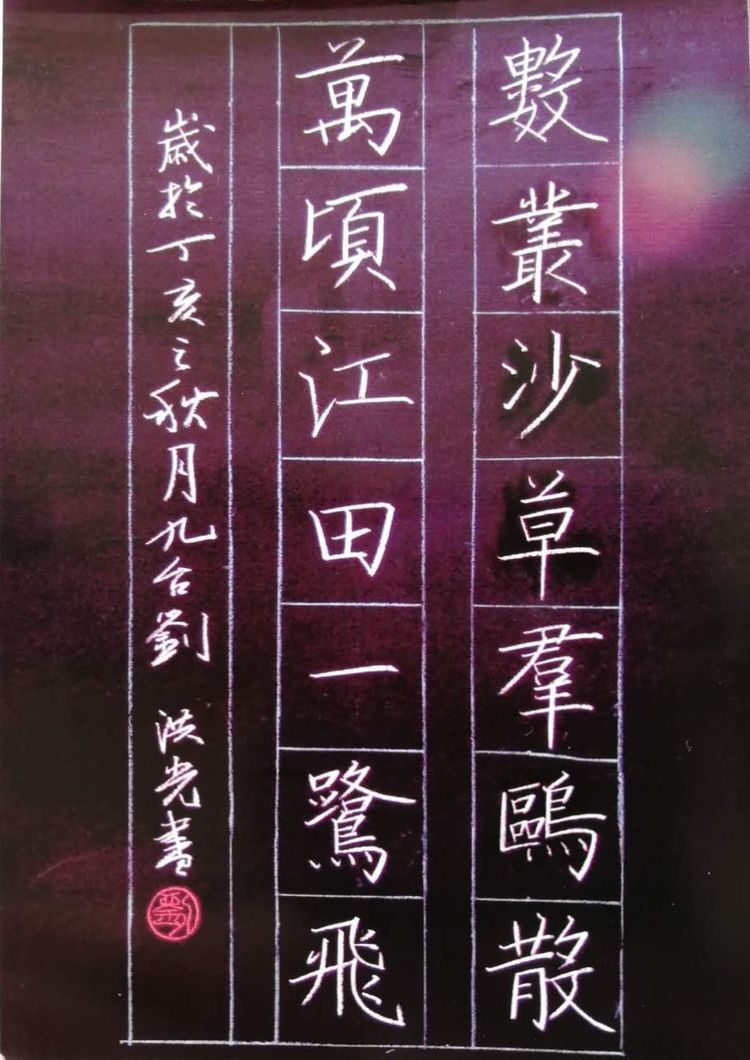 數叢沙草羣鷗散
萬頃江田一鷺飛
歲於丁亥之秋月九台劉洪光書
劉